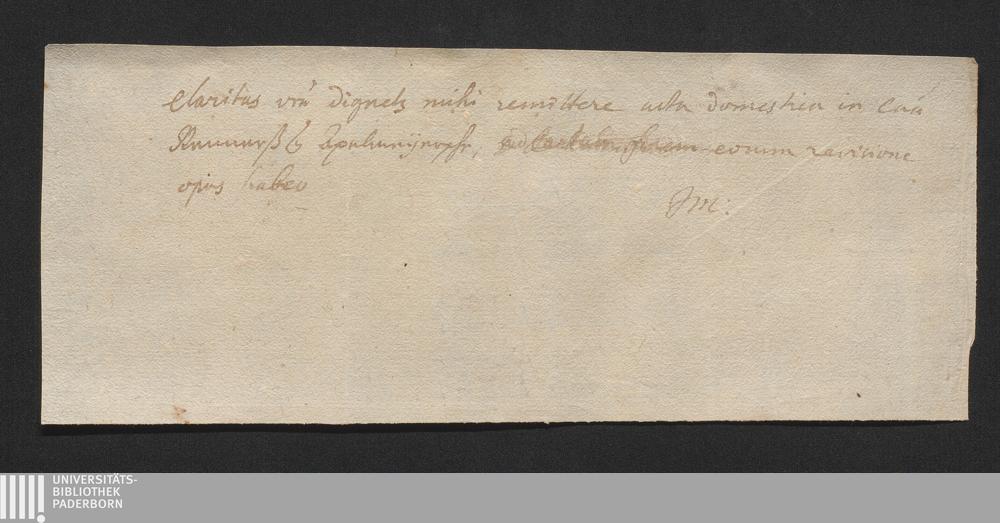 Claritas vrã dignetz mihi remittere acta domestica in caã
ad certum finem eorum revisione
opus habeo
JM:
UNIVERSITÄTS-
BIBLIOTHEK
PADERBORN